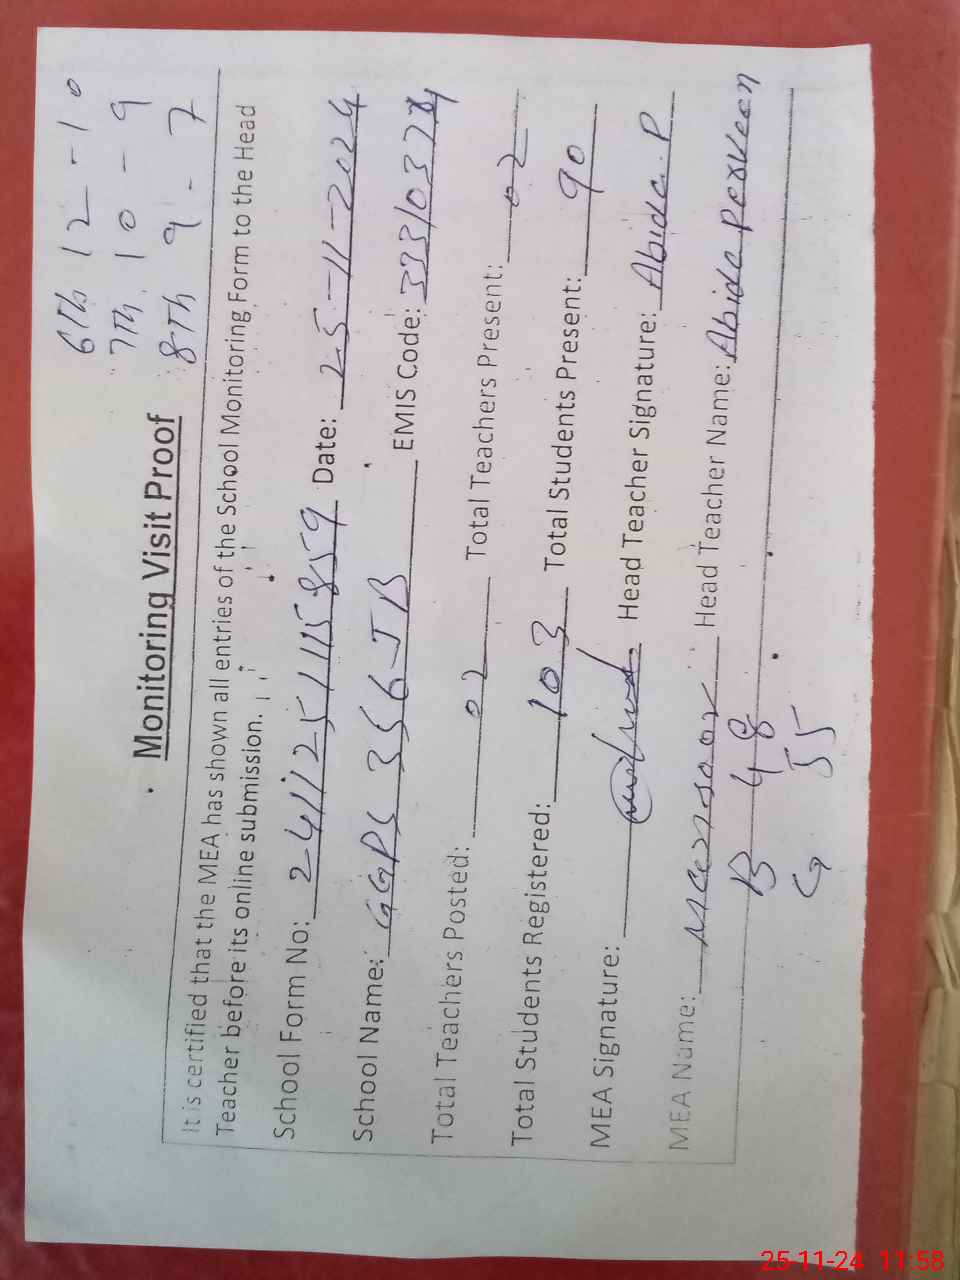 6Th 12 - 10
7Th 10 - 9
8Th 9 - 7
Monitoring Visit Proof
It is certified that the MEA has shown all entries of the School Monitoring Form to the Head
Teacher before its online submission.
School Form No: 2411251115859 Date: 25-11-2024
School Name: GGPS 356 JB EMIS Code: 33310374
Total Teachers Posted: 02 Total Teachers Present: 02
Total Students Registered: 103 Total Students Present: 90
MEA Signature: Head Teacher Signature: Abida.P
MEA Name: Mansoor Head Teacher Name: Abida Perveen
B 48
G 55
25-11-24 11:58